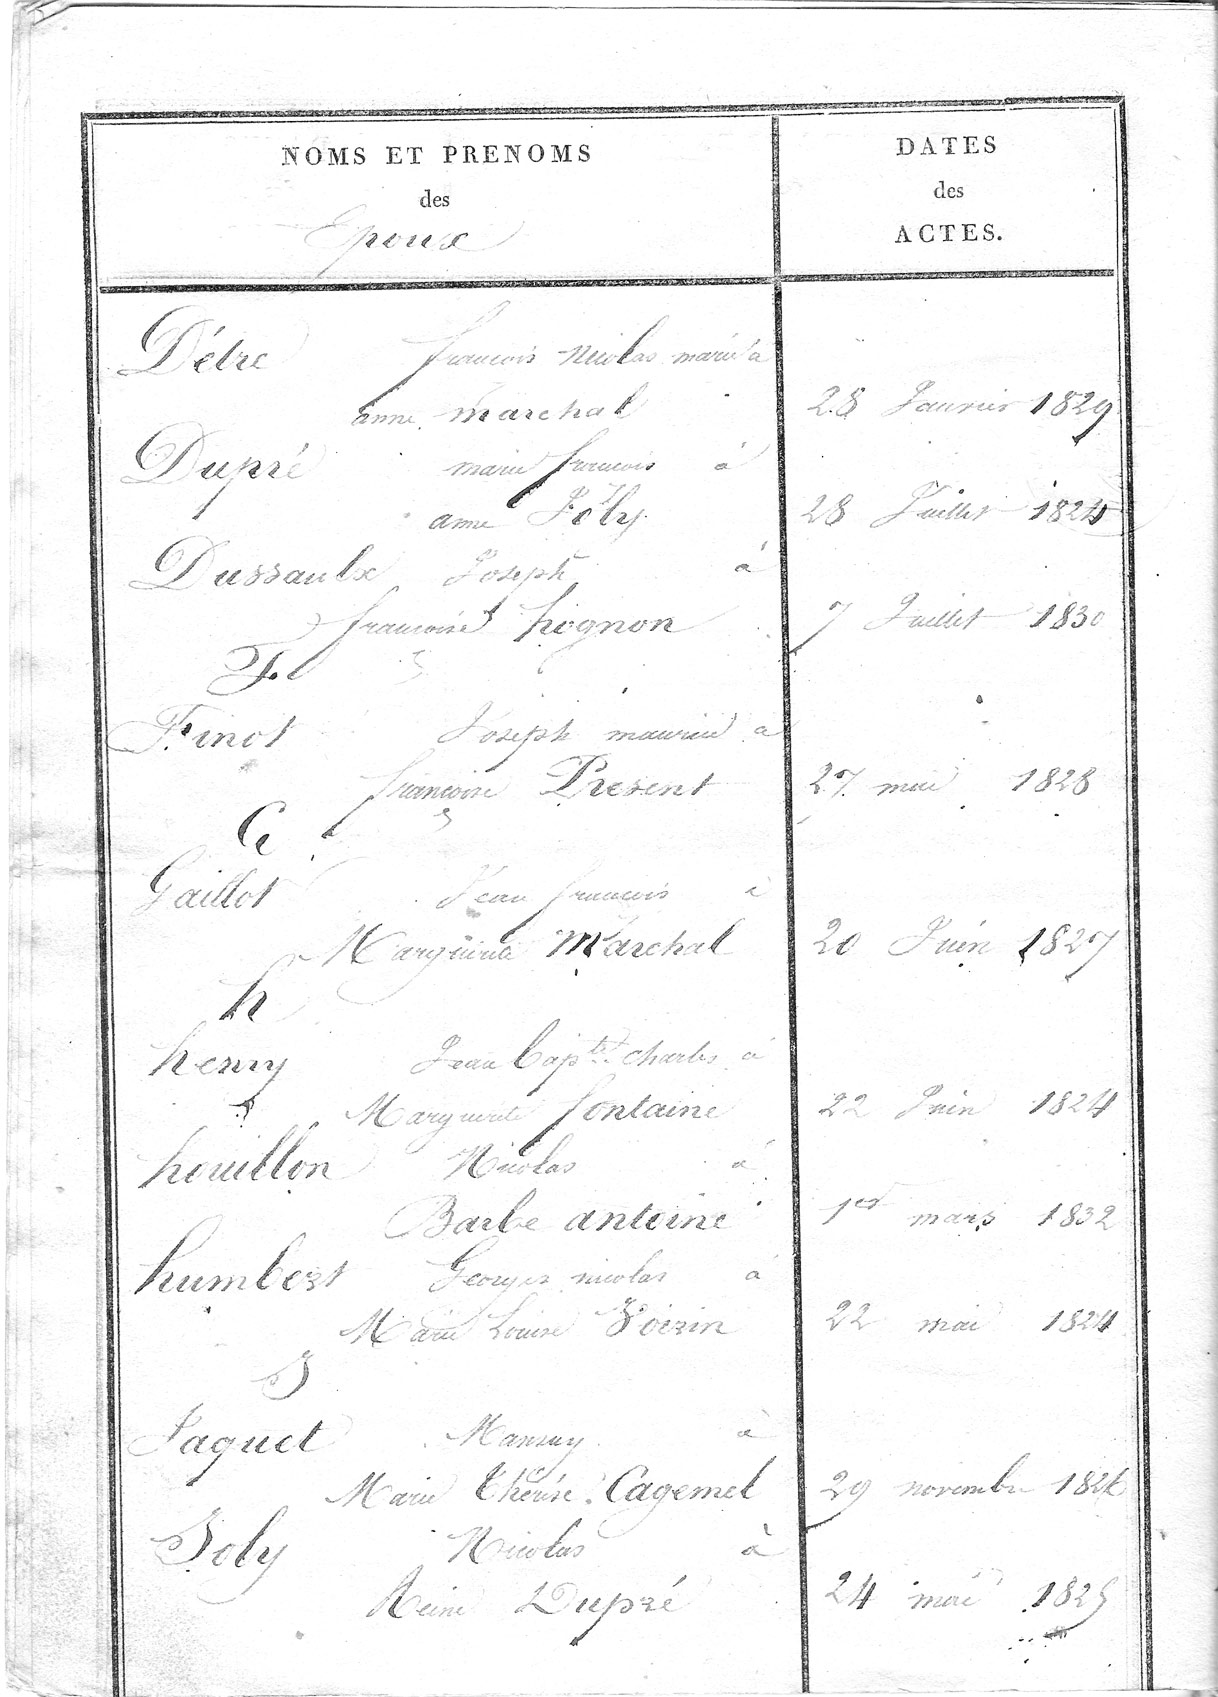 NOMS ET PRENOMS
des
Epoux
DATES
des
ACTES.
Détre francois Nicolas marié à
anne marchal 28 Janvier 1829
Dupré marie francois à
anne Joly 28 Juillet 1824
Dussaulx Joseph à
francoise hognon 7 Juillet 1830
F.
Finot Joseph maurice a
francoise Present 27 mai 1828
G
Gaillot Jean francois à
Marguerite Marchal 20 Juin 1827
h
henry Jean bapte. charles à
Marguerite fontaine 22 Juin 1824
houillon Nicolas à
Barbe antoine 1er mars 1832
humbert Georges nicolas à
Marie Louise Voirin 22 mai 1824
J
Jaquet Mansuy à
Marie thérèse Cagemel 29 novembre 1826
Joly Nicolas à
Reine Dupré 24 mai 1825